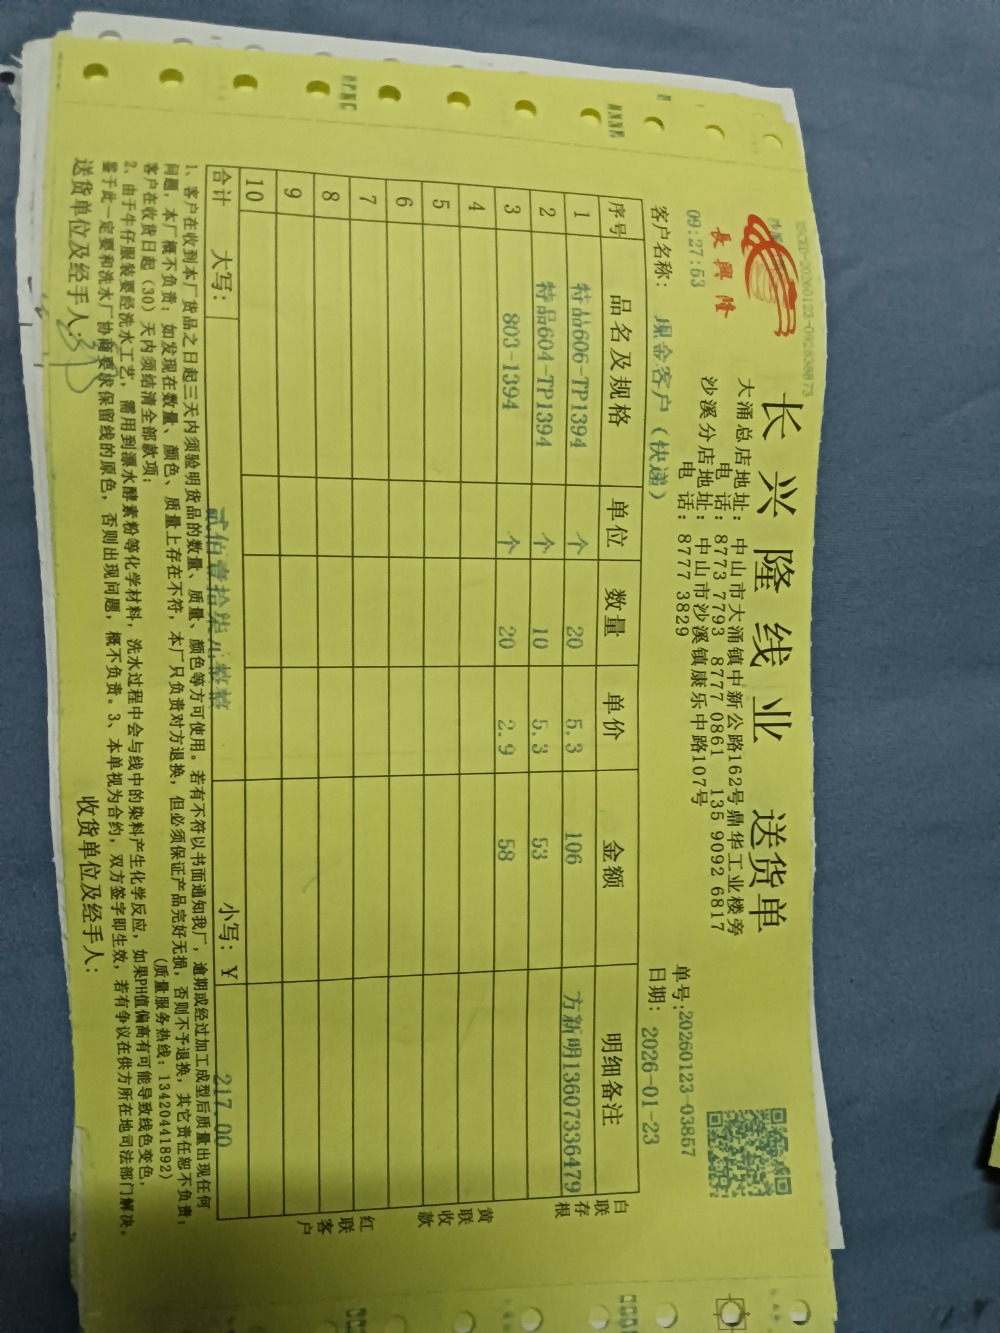 長興隆
长兴隆线业 送货单
大涌总店地址: 中山市大涌镇中新公路162号鼎华工业楼旁
电 话: 8773 7793 8777 0861 135 9092 6817
沙溪分店地址: 中山市沙溪镇康乐中路107号
电 话: 8777 3829
09:27:53
单号:20260123-03857
客户名称: 现金客户(快递)
日期: 2026-01-23
序号 品名及规格 单位 数量 单价 金额 明细备注
1 特品606-TP1394 个 20 5.3 106 方新明13607336479
2 特品604-TP1394 个 10 5.3 53
3 803-1394 个 20 2.9 58
4
5
6
7
8
9
10
合计 大写: 贰佰壹拾柒 整 小写: ¥ 217.00
白联存根
黄联收款
红联客户
1、客户在收到本厂货品之日起三天内须验明货品的数量、质量、颜色等方可使用。若有不符以书面通知我厂,逾期或经过加工成型后质量出现任何
问题,本厂概不负责;如发现在数量、颜色、质量上存在不符,本厂只负责对方退换,但必须保证产品完好无损,否则不予退换,其它责任恕不负责;
客户在收货日起(30)天内须结清全部款项; (质量服务热线:13420441892)
2、由于牛仔服装要经洗水工艺,需用到漂水酵素粉等化学材料,洗水过程中会与线中的染料产生化学反应,如果PH值偏高有可能导致线色变色,
鉴于此一定要和洗水厂协商要求保留线的原色,否则出现问题,概不负责。3、本单视为合约,双方签字即生效,若有争议在供方所在地司法部门解决,
送货单位及经手人: 收货单位及经手人: